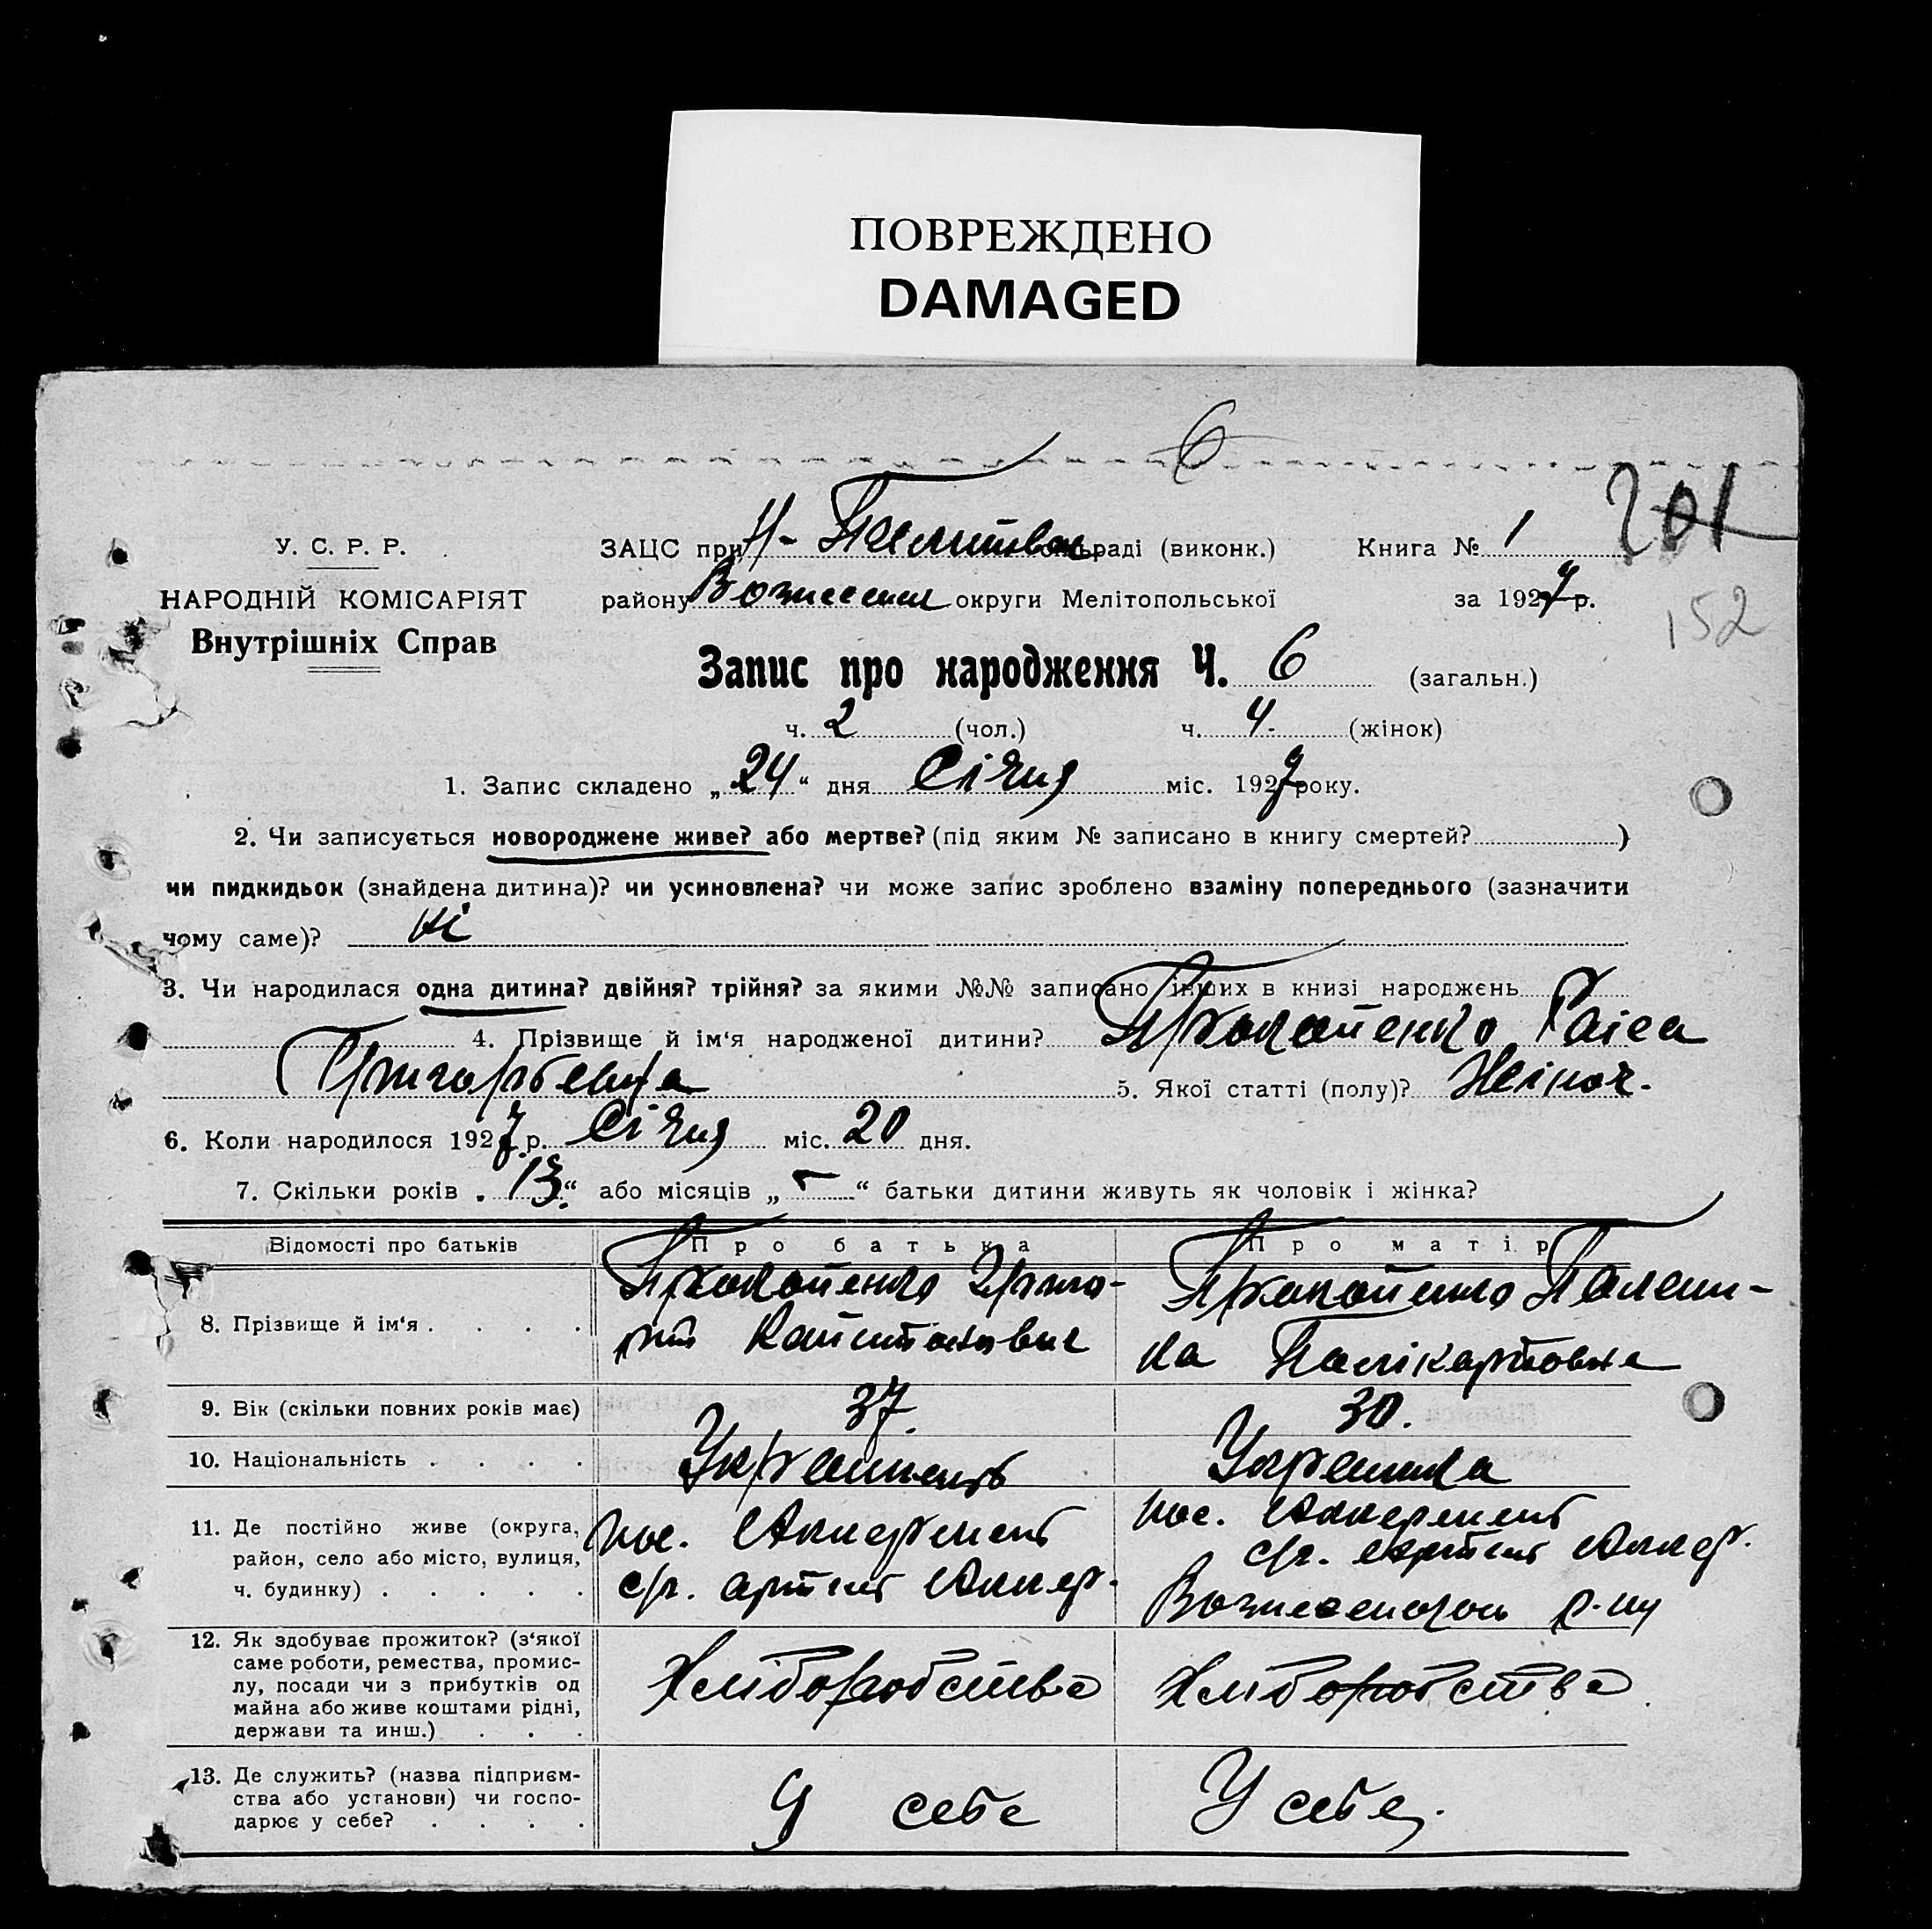 ПОВРЕЖДЕНО
DAMAGED
6
201
152
У. С. Р. Р.
НАРОДНІЙ КОМІСАРІЯТ
Внутрішніх Справ
ЗАЦС при Н- раді (виконк.) Книга № 1
району округи Мелітопольської за 1927 р.
Запис про народження Ч. 6 (загальн.)
ч. 2 (чол.) ч. 4. (жінок)
1. Запис складено „24“ дня Січня міс. 1927 року.
2. Чи записується новороджене живе? або мертве? (під яким № записано в книгу смертей? )
чи пидкидьок (знайдена дитина)? чи усиновлена? чи може запис зроблено взаміну попереднього (зазначити
чому саме)? ні
3. Чи народилася одна дитина? двійня? трійня? за якими №№ записано інших в книзі народжень
4. Прізвище й ім‘я народженої дитини? Прокопенко Раіса
Григорьевна 5. Якої статті (полу)? Жіноч.
6. Коли народилося 1927 р. Січня міс. 20 дня.
7. Скільки років „13“ або місяців „-“ батьки дитини живуть як чоловік і жінка?
Відомості про батьків Про батька Про матір
8. Прізвище й ім‘я . . . . Прокопенко Григо-
рий
Прокопенко Пелаги-
9. Вік (скільки повних років має) 37. 30.
10. Національність . . . . Украінець Украінка
11. Де постійно живе (округа,
район, село або місто, вулиця,
ч. будинку) . . . . .
пос. Аккермень
с/г. артіль Аккер.
пос. Аккермень
с/г. артіль Аккер.
р-ну
12. Як здобуває прожиток? (з‘якої
саме роботи, ремества, промис-
лу, посади чи з прибутків од
майна або живе коштами рідні,
держави та инш.) . . .
Хліборобство
Хліборобство
13. Де служить? (назва підприєм-
ства або установи) чи госпо-
дарює у себе? . . . .
У себе
У себе.